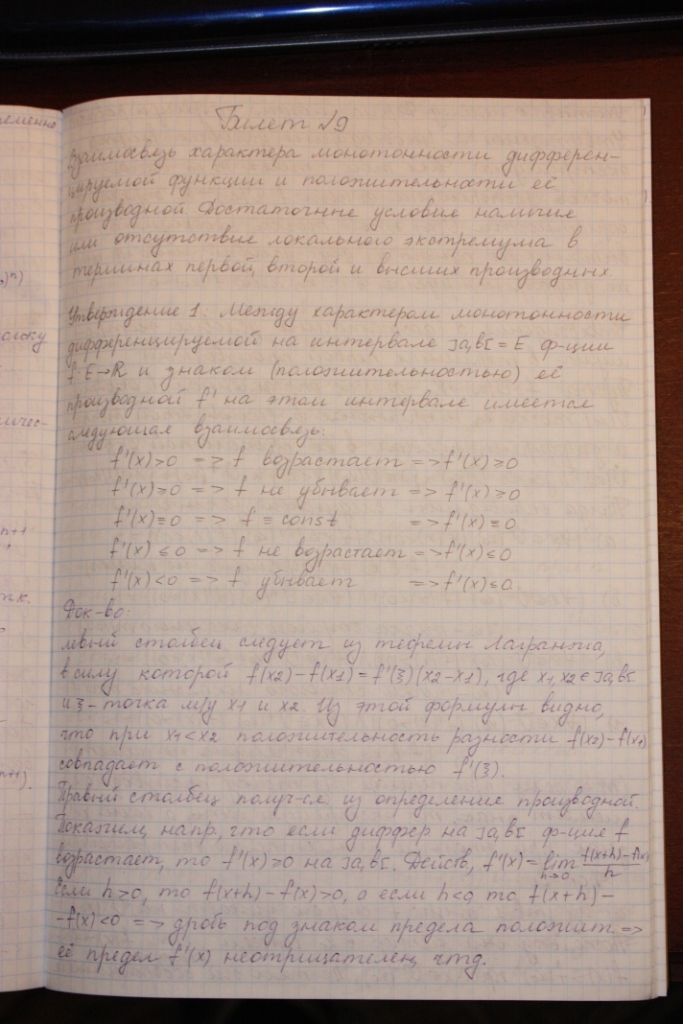 Билет №9
Взаимосвязь характера монотонности дифферен-
цируемой функции и положительности её
производной. Достаточные условия наличия
или отсутствие локального экстремума в
терминах первой, второй и высших производных
Утверждение 1. Между характером монотонности
дифференцируемой на интервале ]a,b[ = E ф-ции
f: E→R и знаком (положительностью) её
производной f' на этом интервале имеется
следующая взаимосвязь:
f'(x)>0 => f возрастает => f'(x)≥0
f'(x)≥0 => f не убывает => f'(x)≥0
f'(x)≡0 => f ≡ const => f'(x)≡0
f'(x)≤0 => f не возрастает => f'(x)≤0
f'(x)<0 => f убывает => f'(x)≤0
Док-во:
левый столбец следует из теоремы Лагранжа,
в силу которой f(x2)-f(x1)=f'(ξ)(x2-x1), где x1,x2∈]a,b[
и ξ-точка м/у x1 и x2. Из этой формулы видно,
что при x1<x2 положительность разности f(x2)-f(x1)
совпадает с положительностью f'(ξ).
Правый столбец получ-ся из определение производной.
Покажем, напр, что если диффер на ]a,b[ ф-ция f
возрастает, то f'(x)≥0 на ]a,b[. Действ, f'(x)=lim h→0 (f(x+h)-f(x))/h
Если h>0, то f(x+h)-f(x)>0, а если h<0 то f(x+h)-
-f(x)<0 => дробь под знаком предела положит. =>
её предел f'(x) неотрицателен, чтд.
ременно
)ⁿ)
n+1
т.к.
n+1).